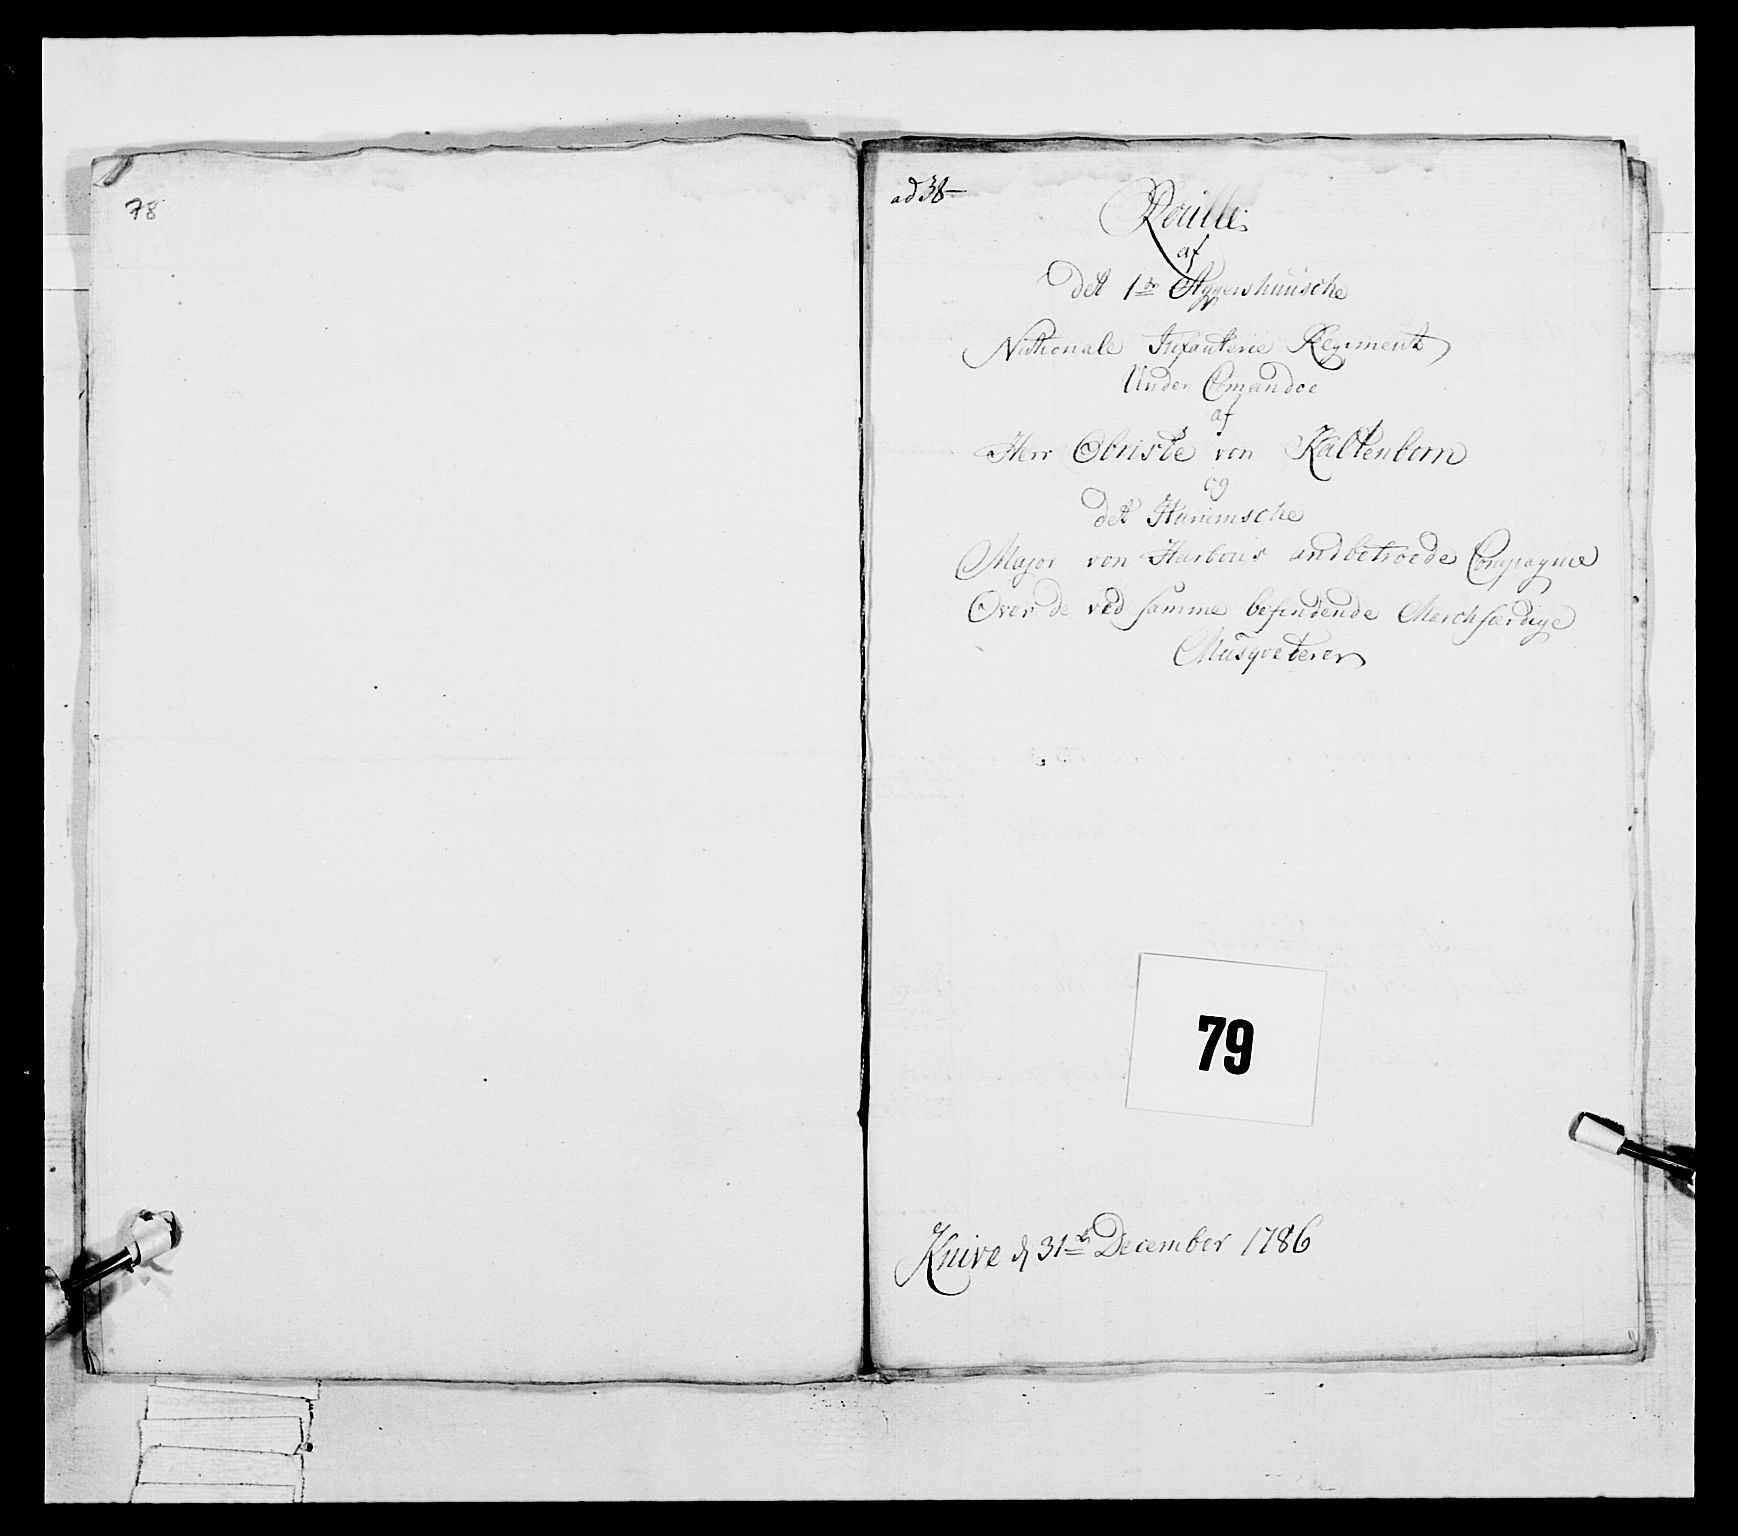 78
ad 38
Roulle
af
Det 1te Aggershuusche
Nathionale Infanterie Regiment
Under Comandoe
af
Herr Obriste von Kaltenborn
og
det Hurumsche
Major von Harbous andbetroede Compagnie
Over de ved samme befindende Marchfærdige
Musqveterer
79
Knive d 31te December 1786